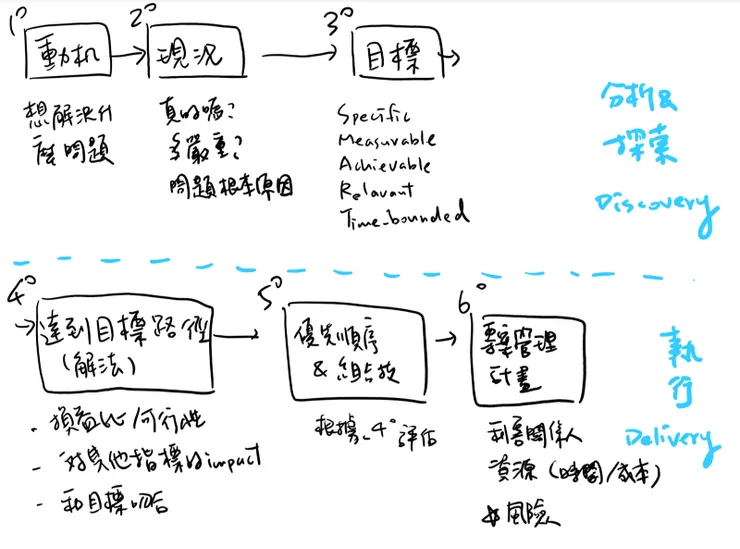 1°
動机
想解決什
麼問題
2°
現況
真的嗎?
多嚴重?
問題根本原因
3°
目標
Specific
Measurable
Achievable
Relavant
Time-bounded
分析&
探索
Discovery
4°
達到目標路徑
(解法)
- 損益比/可行性
- 對其他指標的impact
- 和目標吻合
5°
優先順序
&
根據 4° 評估
6°
專案管理
計畫
利害關係人
資源 (時間/成本)
風險
執
行
Delivery